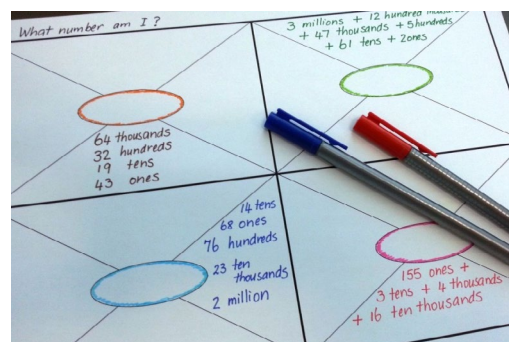 What number am I?
64 thousands
32 hundreds
19 tens
43 ones
3 millions + 12 hundred
+ 47 thousands + 5 hundreds
+ 61 tens + 2 ones
14 tens
68 ones
76 hundreds
23 ten
thousands
2 million
155 ones +
3 tens + 4 thousands
+ 16 ten thousands